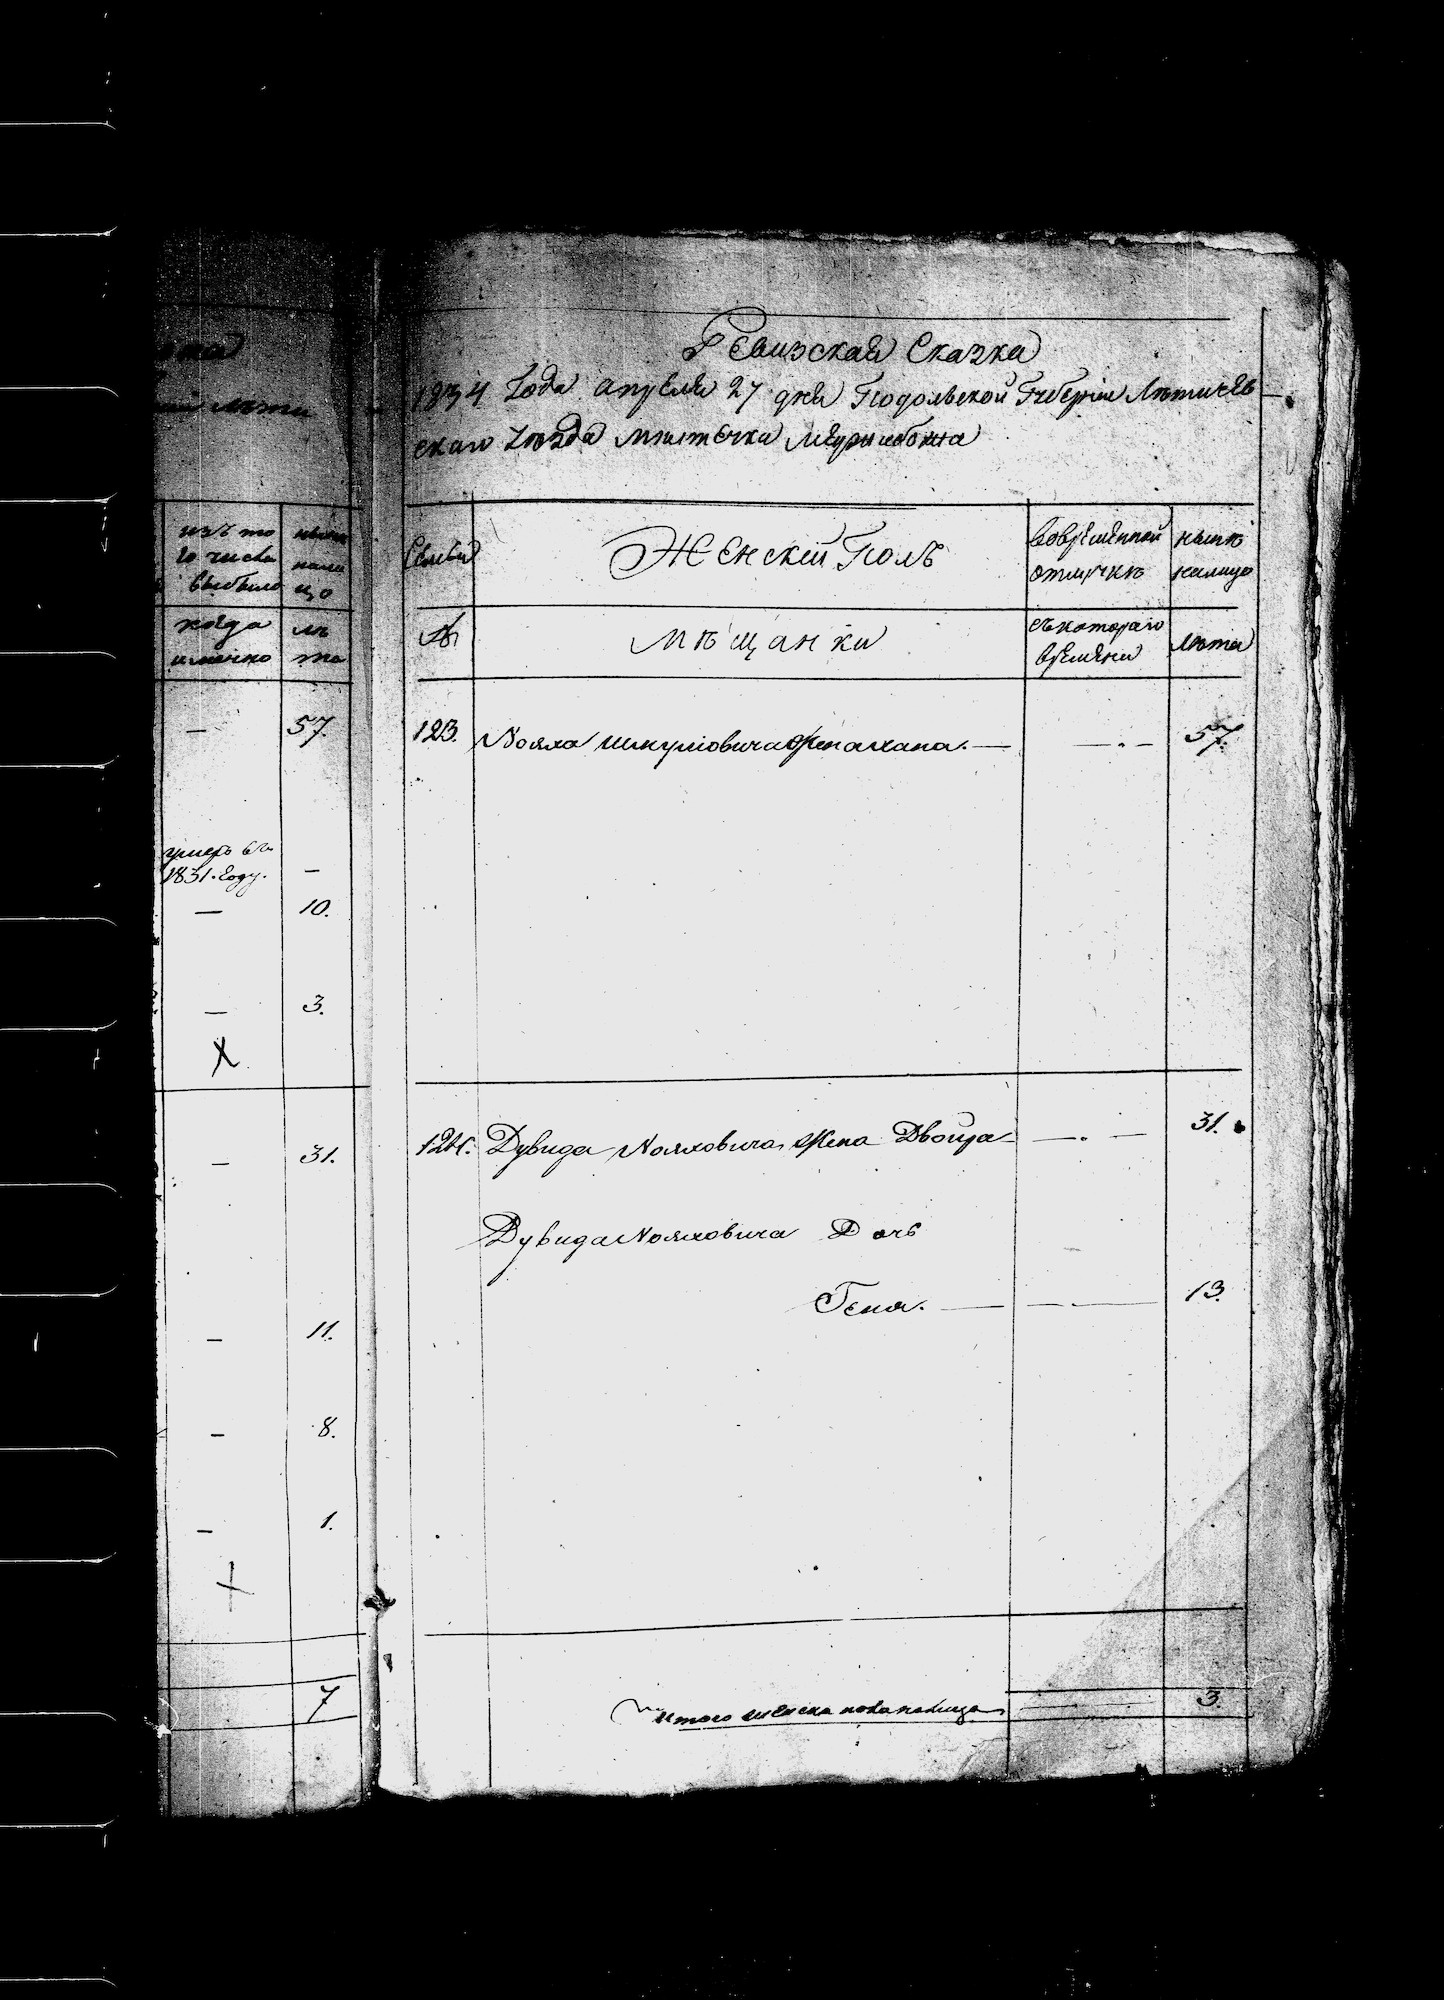 изъ то
го числа
выбыло
когда
именно
нали
цо
лѣ
та
—
57.
умеръ въ
1831. году.
—
—
10.
—
3.
X
—
31.
—
11.
—
8.
—
1.
7
Ревизская Сказка
1834 Года апреля 27 дня Подольской Губерніи Лѣтичев
скаго уѣзда мѣстечка Меджибожа
Семьи
Женскій Полъ
Вовременной
отлучкѣ
нынѣ
налицо
№
мѣщанки
съ котораго
времени
лѣта
123.
Шмулiовича жена Хана.
57.
124.
Дувида Нояховича жена Двойра
31.
Дувида Нояховича Дочь
Геня.
13.
итого женска пола налицо
3.